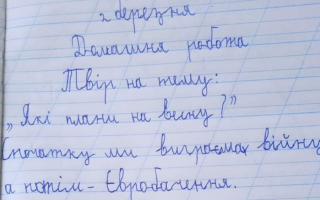 2 березня
Домашня робота
Твір на тему:
„Які плани на весну?”
Спочатку ми виграємо війну
а потім - Євробачення.